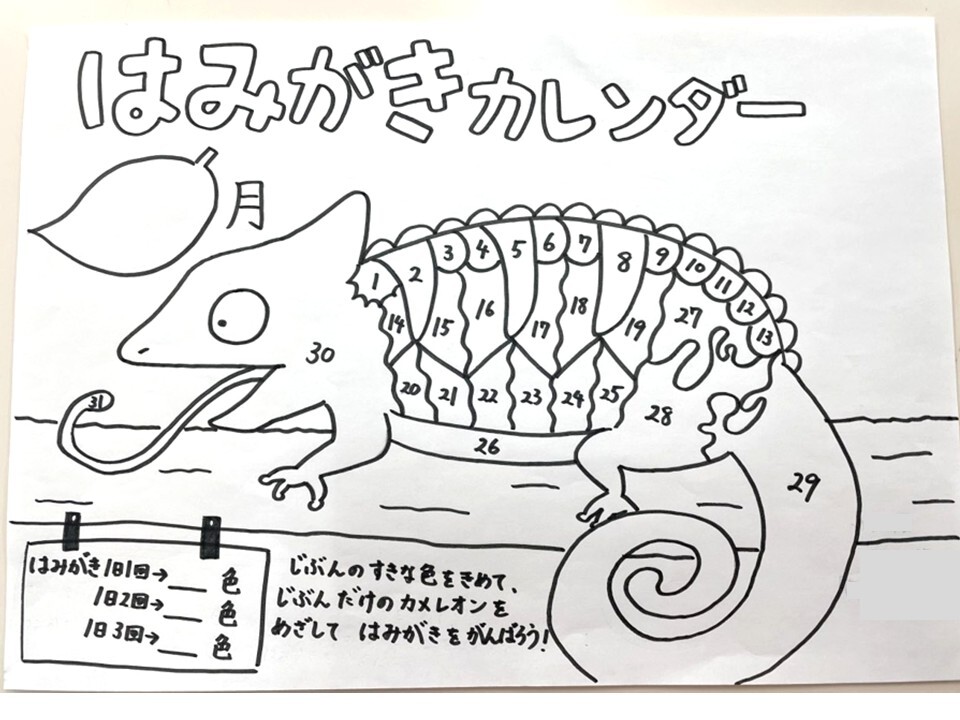 はみがきカレンダー
月
1 2 3 4 5 6 7 8 9 10 11 12 13
14 15 16 17 18 19 27
30
20 21 22 23 24 25 28
31
26
29
はみがき1日1回→___色
1日2回→___色
1日3回→___色
じぶんのすきな色をきめて、
じぶんだけのカメレオンを
めざして はみがきをがんばろう!